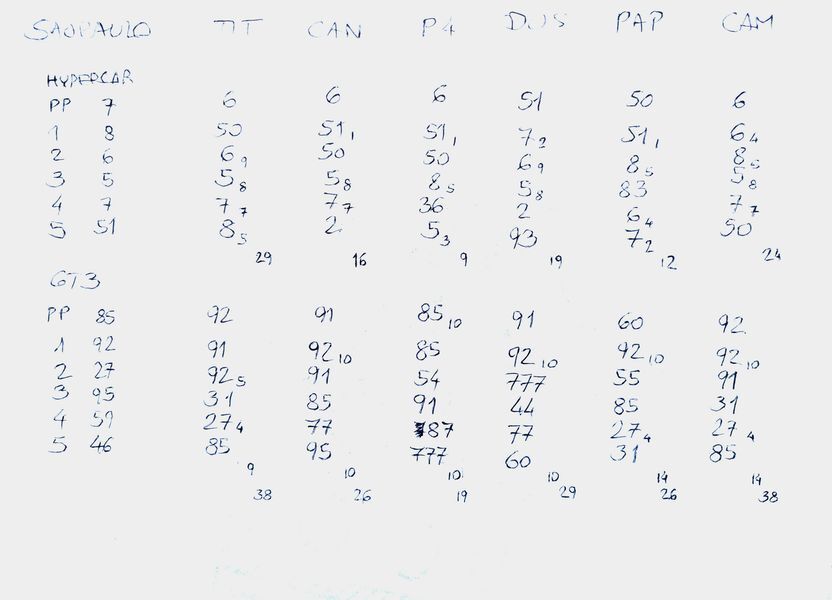 SAOPAULO TIT CAN P4 DUS PAP CAM
HYPERCAR
PP 7 6 6 6 51 50 6
1 8 50 51 1 51 1 7 2 51 1 6 4
2 6 6 9 50 50 6 9 8 5 8 5
3 5 5 8 5 8 8 5 5 8 83 5 8
4 7 7 7 7 7 36 2 6 4 7 7
5 51 8 5 2 5 3 93 7 2 50
29 16 9 19 12 24
GT3
PP 85 92 91 85 10 91 60 92
1 92 91 92 10 85 92 10 92 10 92 10
2 27 92 5 91 54 777 55 91
3 95 31 85 91 44 85 31
4 59 27 4 77 87 77 27 4 27 4
5 46 85 95 777 60 31 85
9 10 10 10 14 14
38 26 19 29 26 38